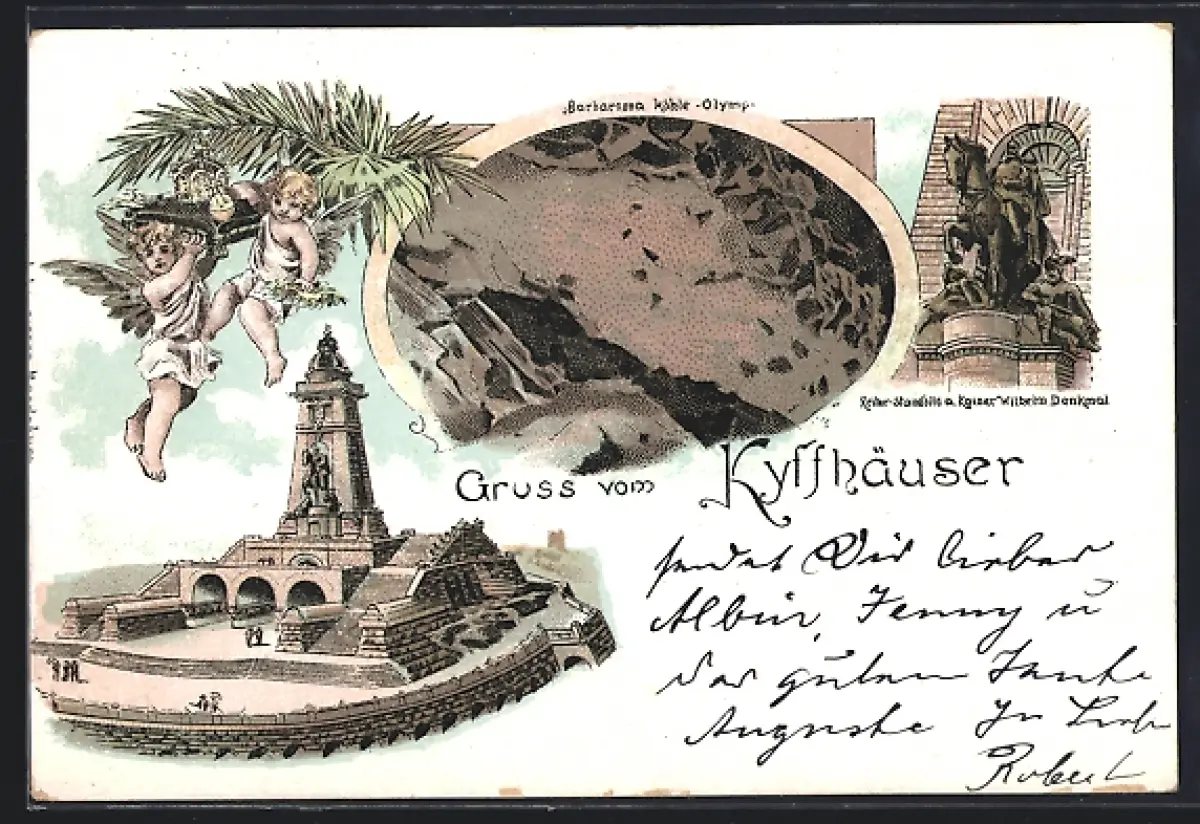 „Barbarossa Höhle-Olymp“
Reiter-Standbild a. Kaiser Wilhelm Denkmal
Gruss vom Kyffhäuser
sendet Dir lieber
Albin, Jenny u
der guten Tante
Auguste Ihr
Robert